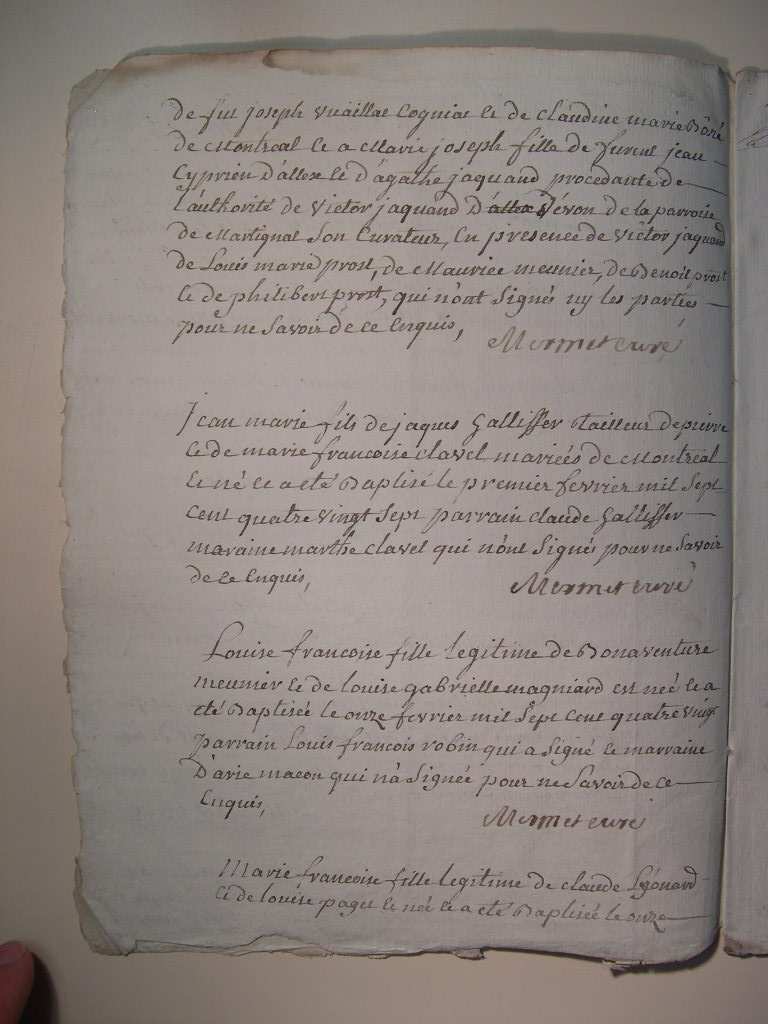 de feu joseph vuaillat Cogniat et de Claudine marie
de Montreal et a Marie joseph fille de furent jean
Cyprien D'allex et d'agathe jaquand procedante de
l'authorité de Victor jaquand D'allex Véron de la parroise
de Martignat Son Curateur, En presence de Victor jaquand
de Louis marie prost, de Mauriee meunier, de Benoit prost
et de philibert prost, qui n'ont Signés ny les parties
pour ne Savoir de ce Enquis,
Mermet curé
Jean marie fils de jaques Galliffer tailleur de pierre
et de marie francoise clavel mariés de Montreal
et né et a eté Baptisé le premier fevrier mil Sept
Cent quatre vingt Sept parrain claude Galliffer
maraine marthe clavel qui n'ont Signés pour ne Savoir
de ce Enquis,
Mermet curé
Louise francoise fille legitime de Bonaventure
meunier et de louise gabrielle magniard est née et a
eté Baptisée le onze fevrier mil Sept Cent quatre vingt
parrain Louis francois robin qui a Signé et marraine
macon qui n'a Signée pour ne Savoir de ce
Enquis,
Mermet curé
Marie francoise fille legitime de claude
et de louise paget et née et a eté Baptisée le onze